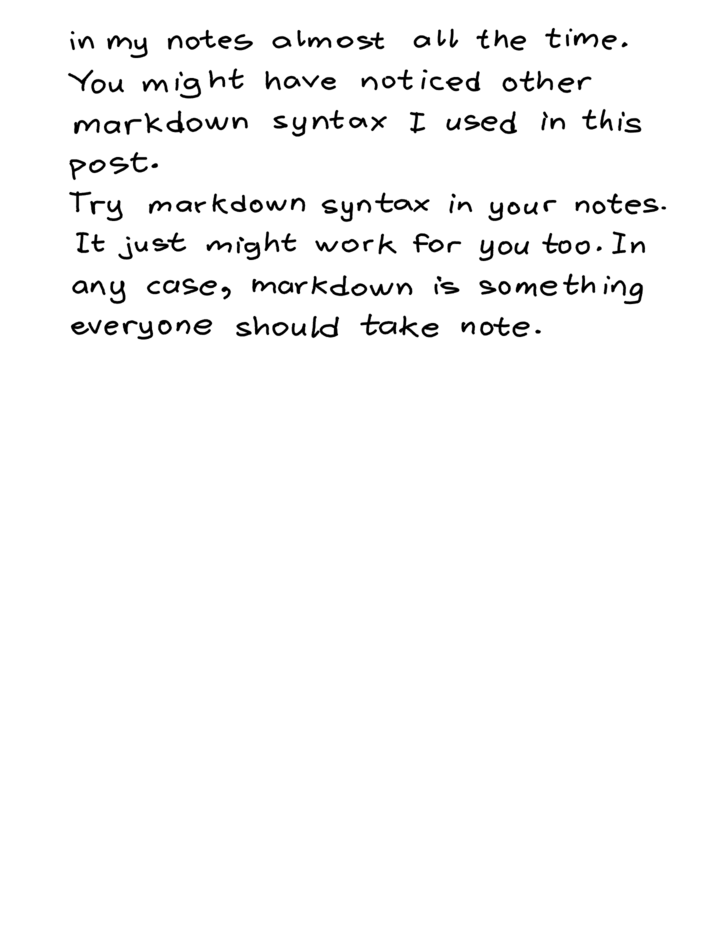 in my notes almost all the time.
You might have noticed other
markdown syntax I used in this
post.
Try markdown syntax in your notes.
It just might work for you too. In
any case, markdown is something
everyone should take note.